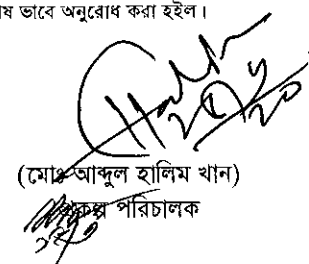 ষ ভাবে অনুরোধ করা হইল।
(মোঃ আব্দুল হালিম খান)
প্রকল্প পরিচালক